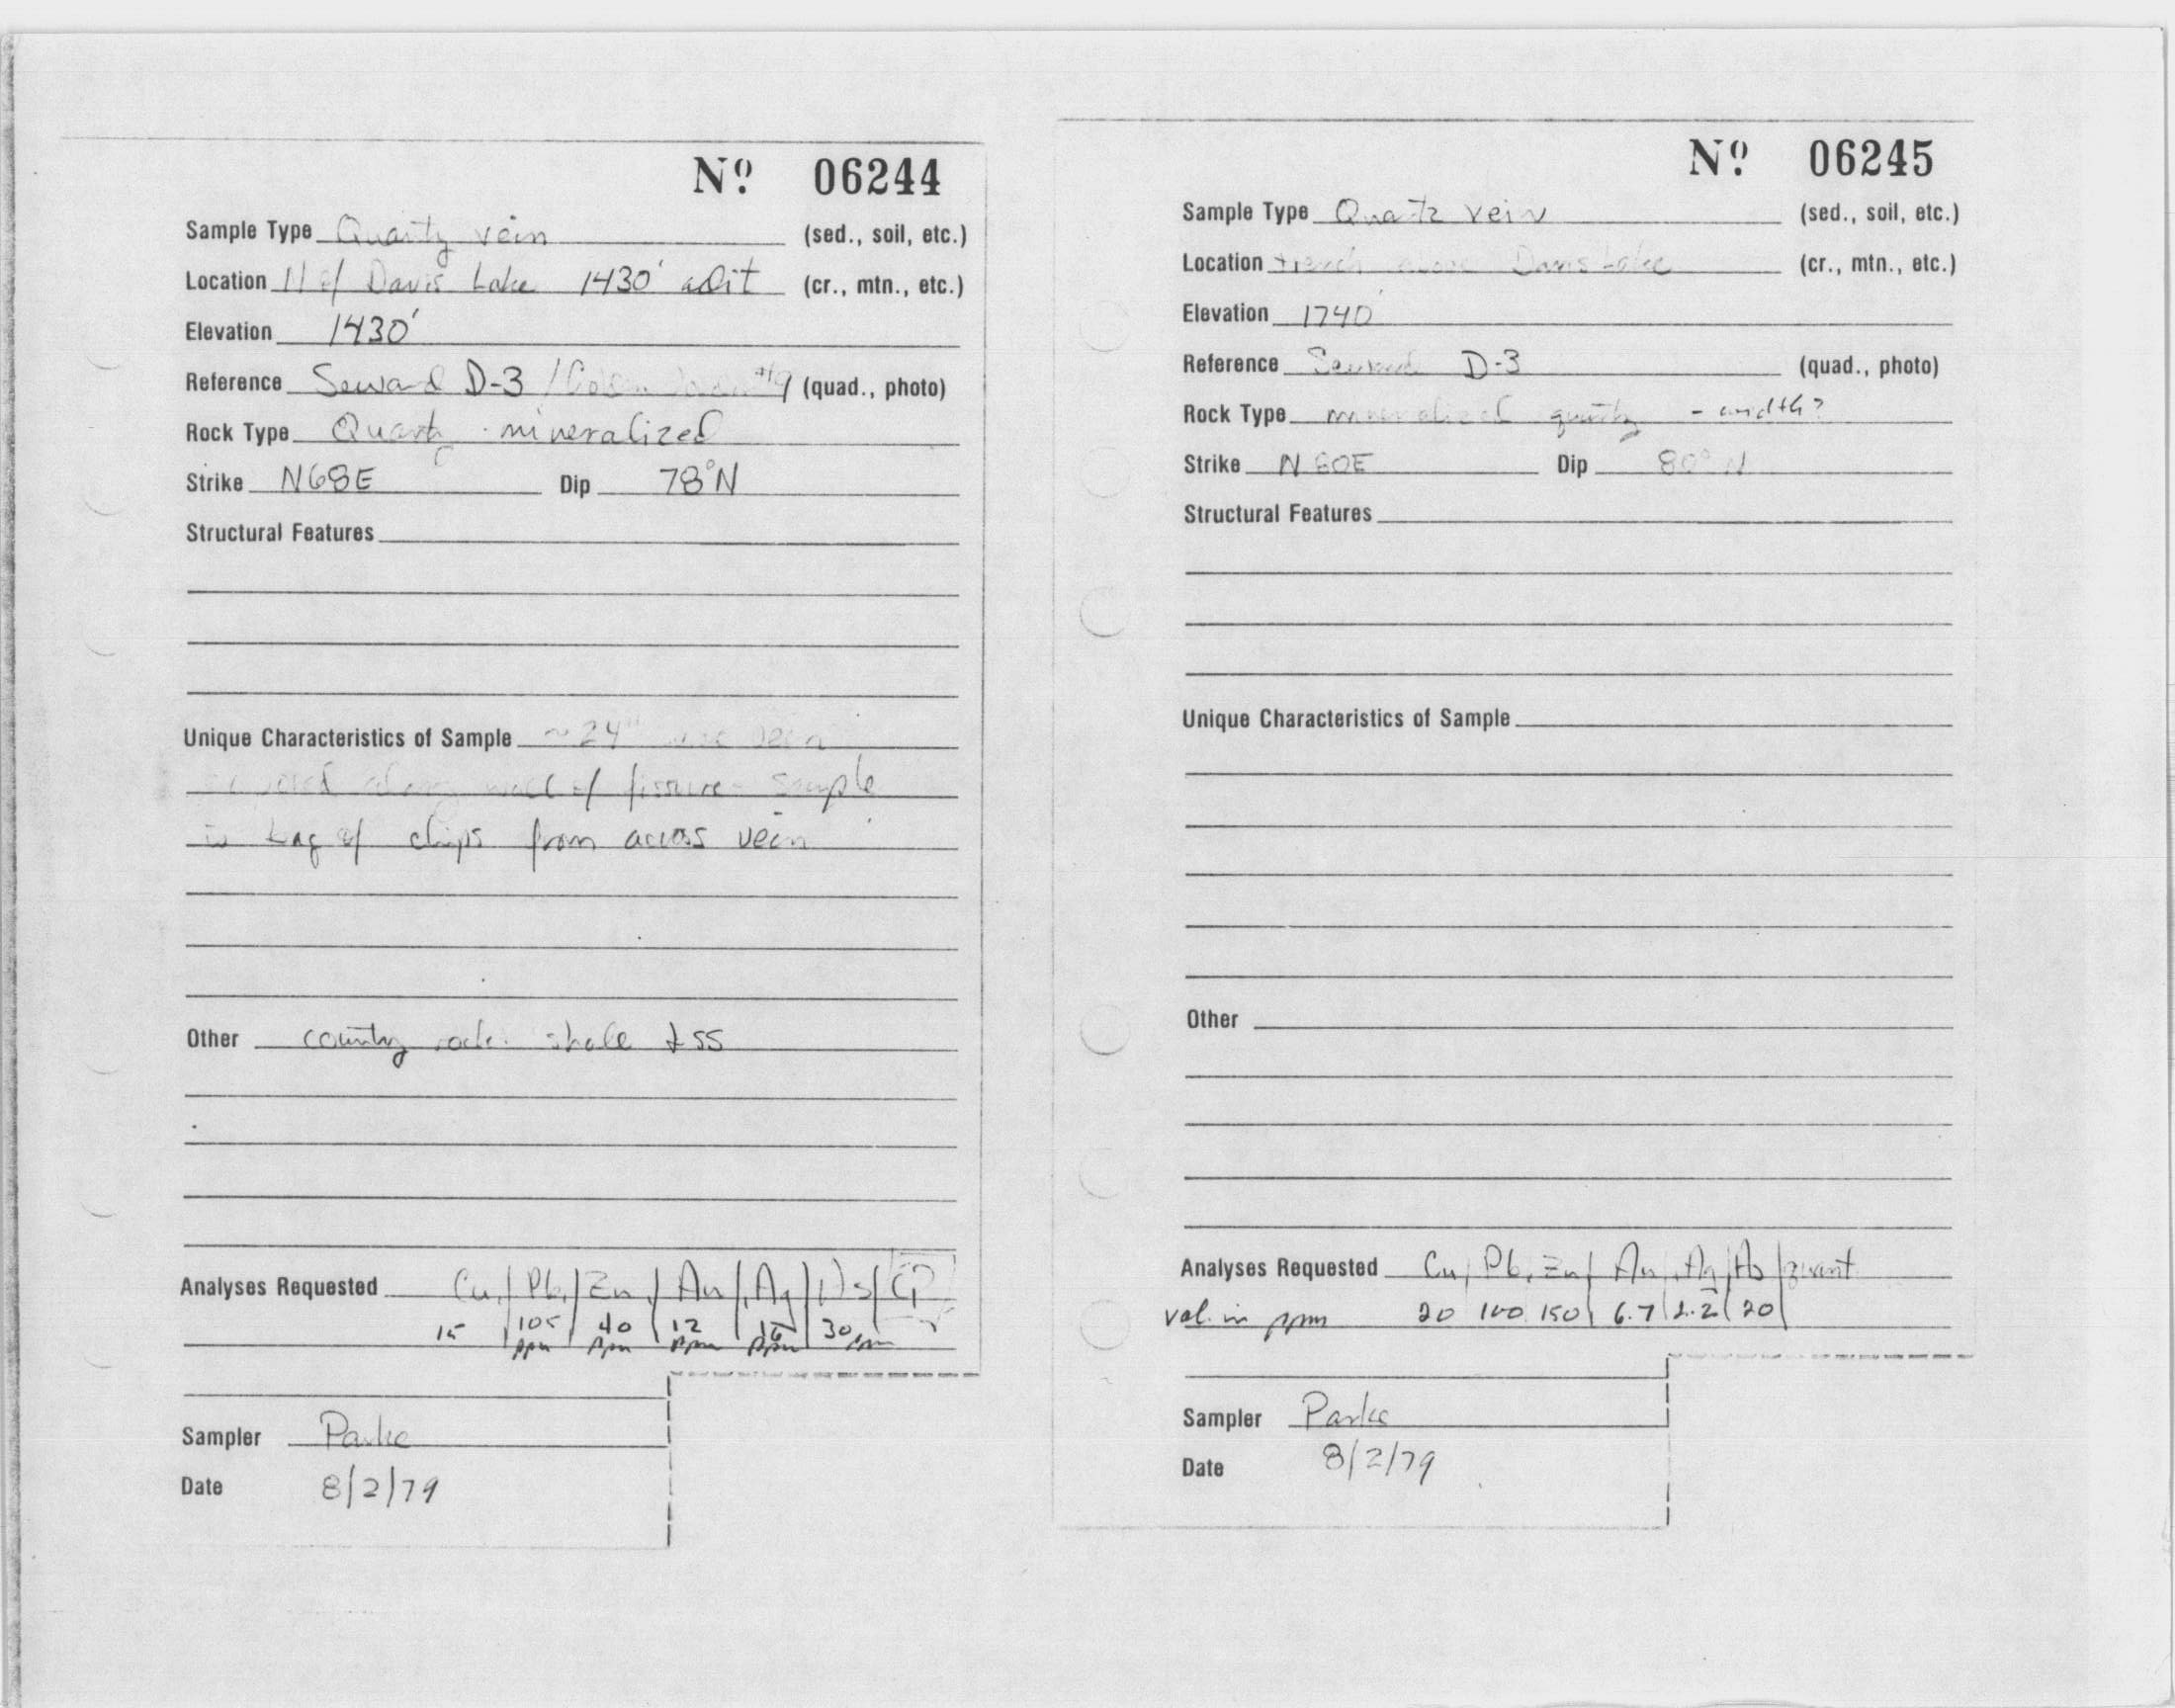 Nº 06244
Sample Type Quartz vein (sed., soil, etc.)
Location N of Davis Lake 1430' adit (cr., mtn., etc.)
Elevation 1430'
Reference Seward D-3 / (quad., photo)
Rock Type Quartz - mineralized
Strike N68E Dip 78°N
Structural Features
Unique Characteristics of Sample ~24" vein
exposed along wall of fissure - sample
is bag of chips from across vein
Other country rock: shale & ss
Analyses Requested Cu, / Pb, / Zn, / Au, / Ag / As /
15 | 105 ppm | 40 ppm | 12 ppm | ppm | 30 ppm
Sampler Parke
Date 8/2/79
Nº 06245
Sample Type Quartz vein (sed., soil, etc.)
Location trench above Davis Lake (cr., mtn., etc.)
Elevation 1740'
Reference Seward D-3 (quad., photo)
Rock Type mineralized quartz - width?
Strike N60E Dip 80° N
Structural Features
Unique Characteristics of Sample
Other
Analyses Requested Cu, Pb, Zn, Au, Ag, As
val. in ppm 20 | 100 150 | 6.7 | 2.2 | 20 |
Sampler Parke
Date 8/2/79